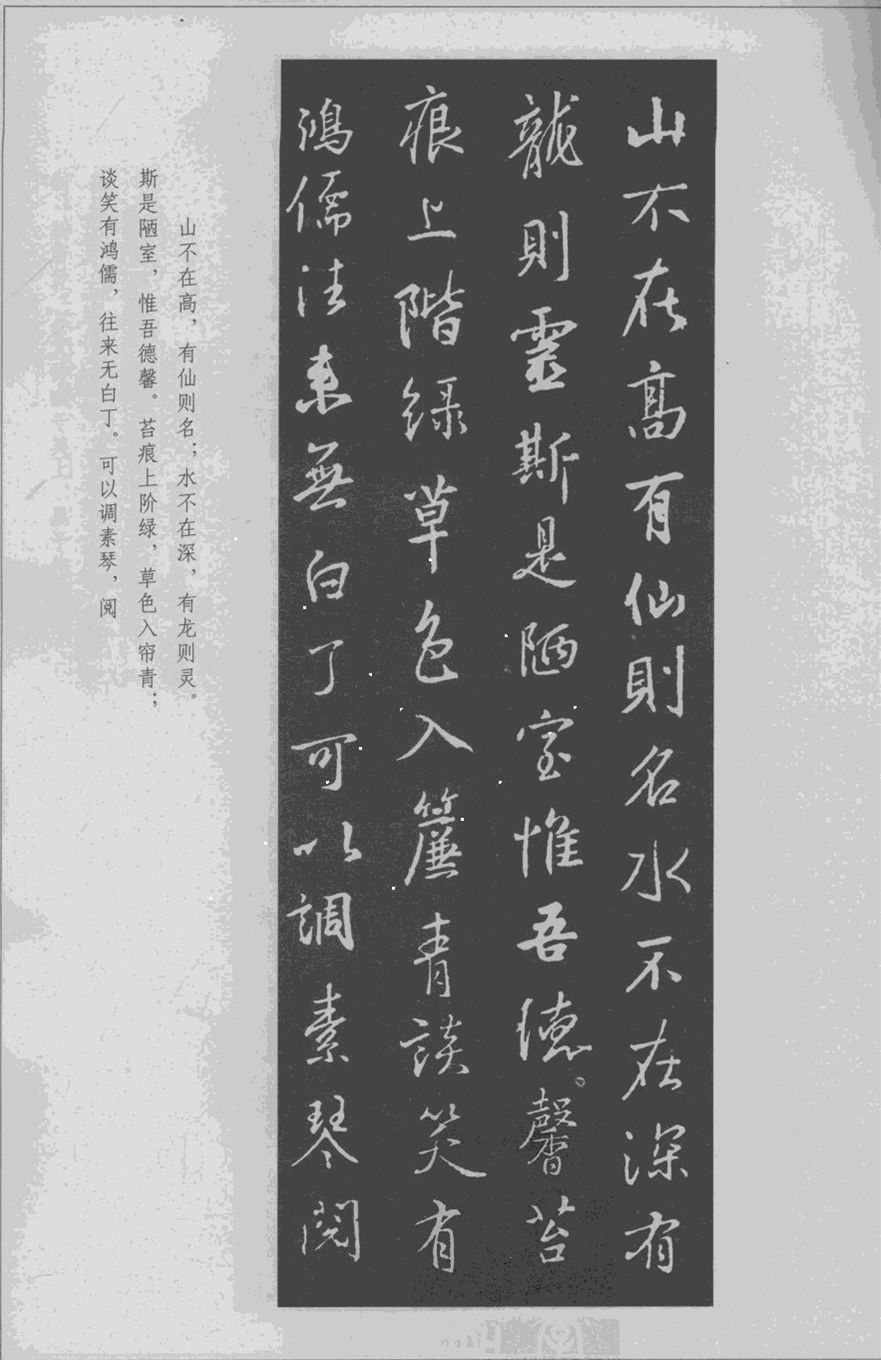 山不在高有仙則名水不在深有
龍則靈斯是陋室惟吾德。馨苔
痕上階緑草色入簾青談笑有
鴻儒往來無白丁可以調素琴閱
山不在高，有仙则名；水不在深，有龙则灵。
斯是陋室，惟吾德馨。苔痕上阶绿，草色入帘青；
谈笑有鸿儒，往来无白丁。可以调素琴，阅